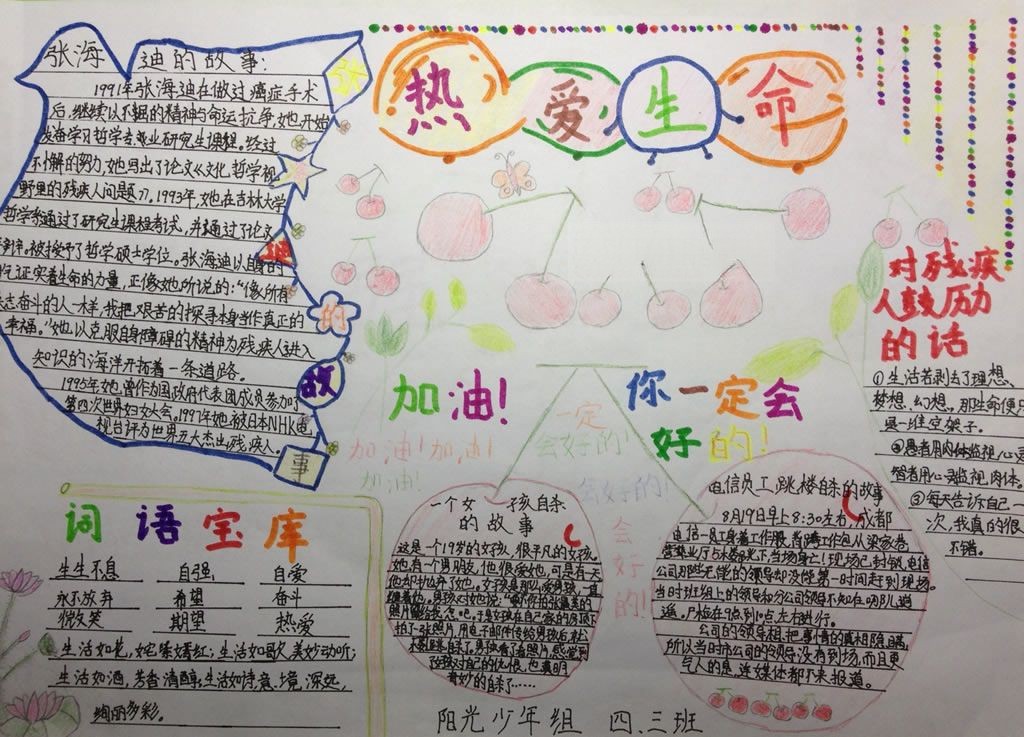 热爱生命
张海迪的故事:
1991年张海迪在做过癌症手术
后,继续以不屈的精神与命运抗争她开始
学习哲学专业研究生课程。经过
不懈的努力她写出了论文《文化哲学视
野里的残疾人问题》。1993年,她在吉林大学
哲学系通过了研究生课程考试,并通过了论文
被授予了哲学硕士学位。张海迪以自身的
证实着生命的力量,正像她所说的:“像所有
志奋斗的人一样,我把艰苦的探寻本身当作真正的
幸福。”她以克服自身障碍的精神为残疾人进入
知识的海洋开拓着一条道路。
1995年她曾作国政府代表团成员参加
第四次世界妇女大会。1997年她被日本NHK电
视台评为世界五大杰出残疾人。
张
迪
的
故
事
对残疾
人鼓历力
的话
①生活若剥去了理想、
梦想、幻想,那生命便只
是一堆空架子。
②愚者用肉体监视心灵
智者用心灵监视肉体。
③每天告诉自己一
次,我真的很
不错。
加油!
你一定会
好的!
加油!加油!
加油!
一定
会好的!
会好的!
会
好
的!
词语宝库
生生不息 自强 自爱
永不放弃 希望 奋斗
微笑 期望 热爱
生活如花,姹紫嫣红;生活如歌,美妙动听;
生活如酒,芳香清醇;生活如诗,意境,深远,
绚丽多彩。
一个女孩自杀
的故事
这是一个19岁的女孩,很平凡的女孩。
她有一个男朋友,他很爱她,可是有一天
拍了一张照片,用电子邮件传给男孩后,
奇妙的自杀了……
电信员工跳楼自杀的故事
8月19日早上8:30左右,成都
电信一员工身着工作服
公司那些无能的领导却没能第一时间赶到现场。
当时班组上的领导和分公司领导不知在哪儿逍
遥。尸检在9点到10点左右进行。
公司的领导想把事情的真相隐瞒,
所以当时市公司的领导没有到场,而且更
气人的是,连媒体都不来报道。
阳光少年组 四.三班